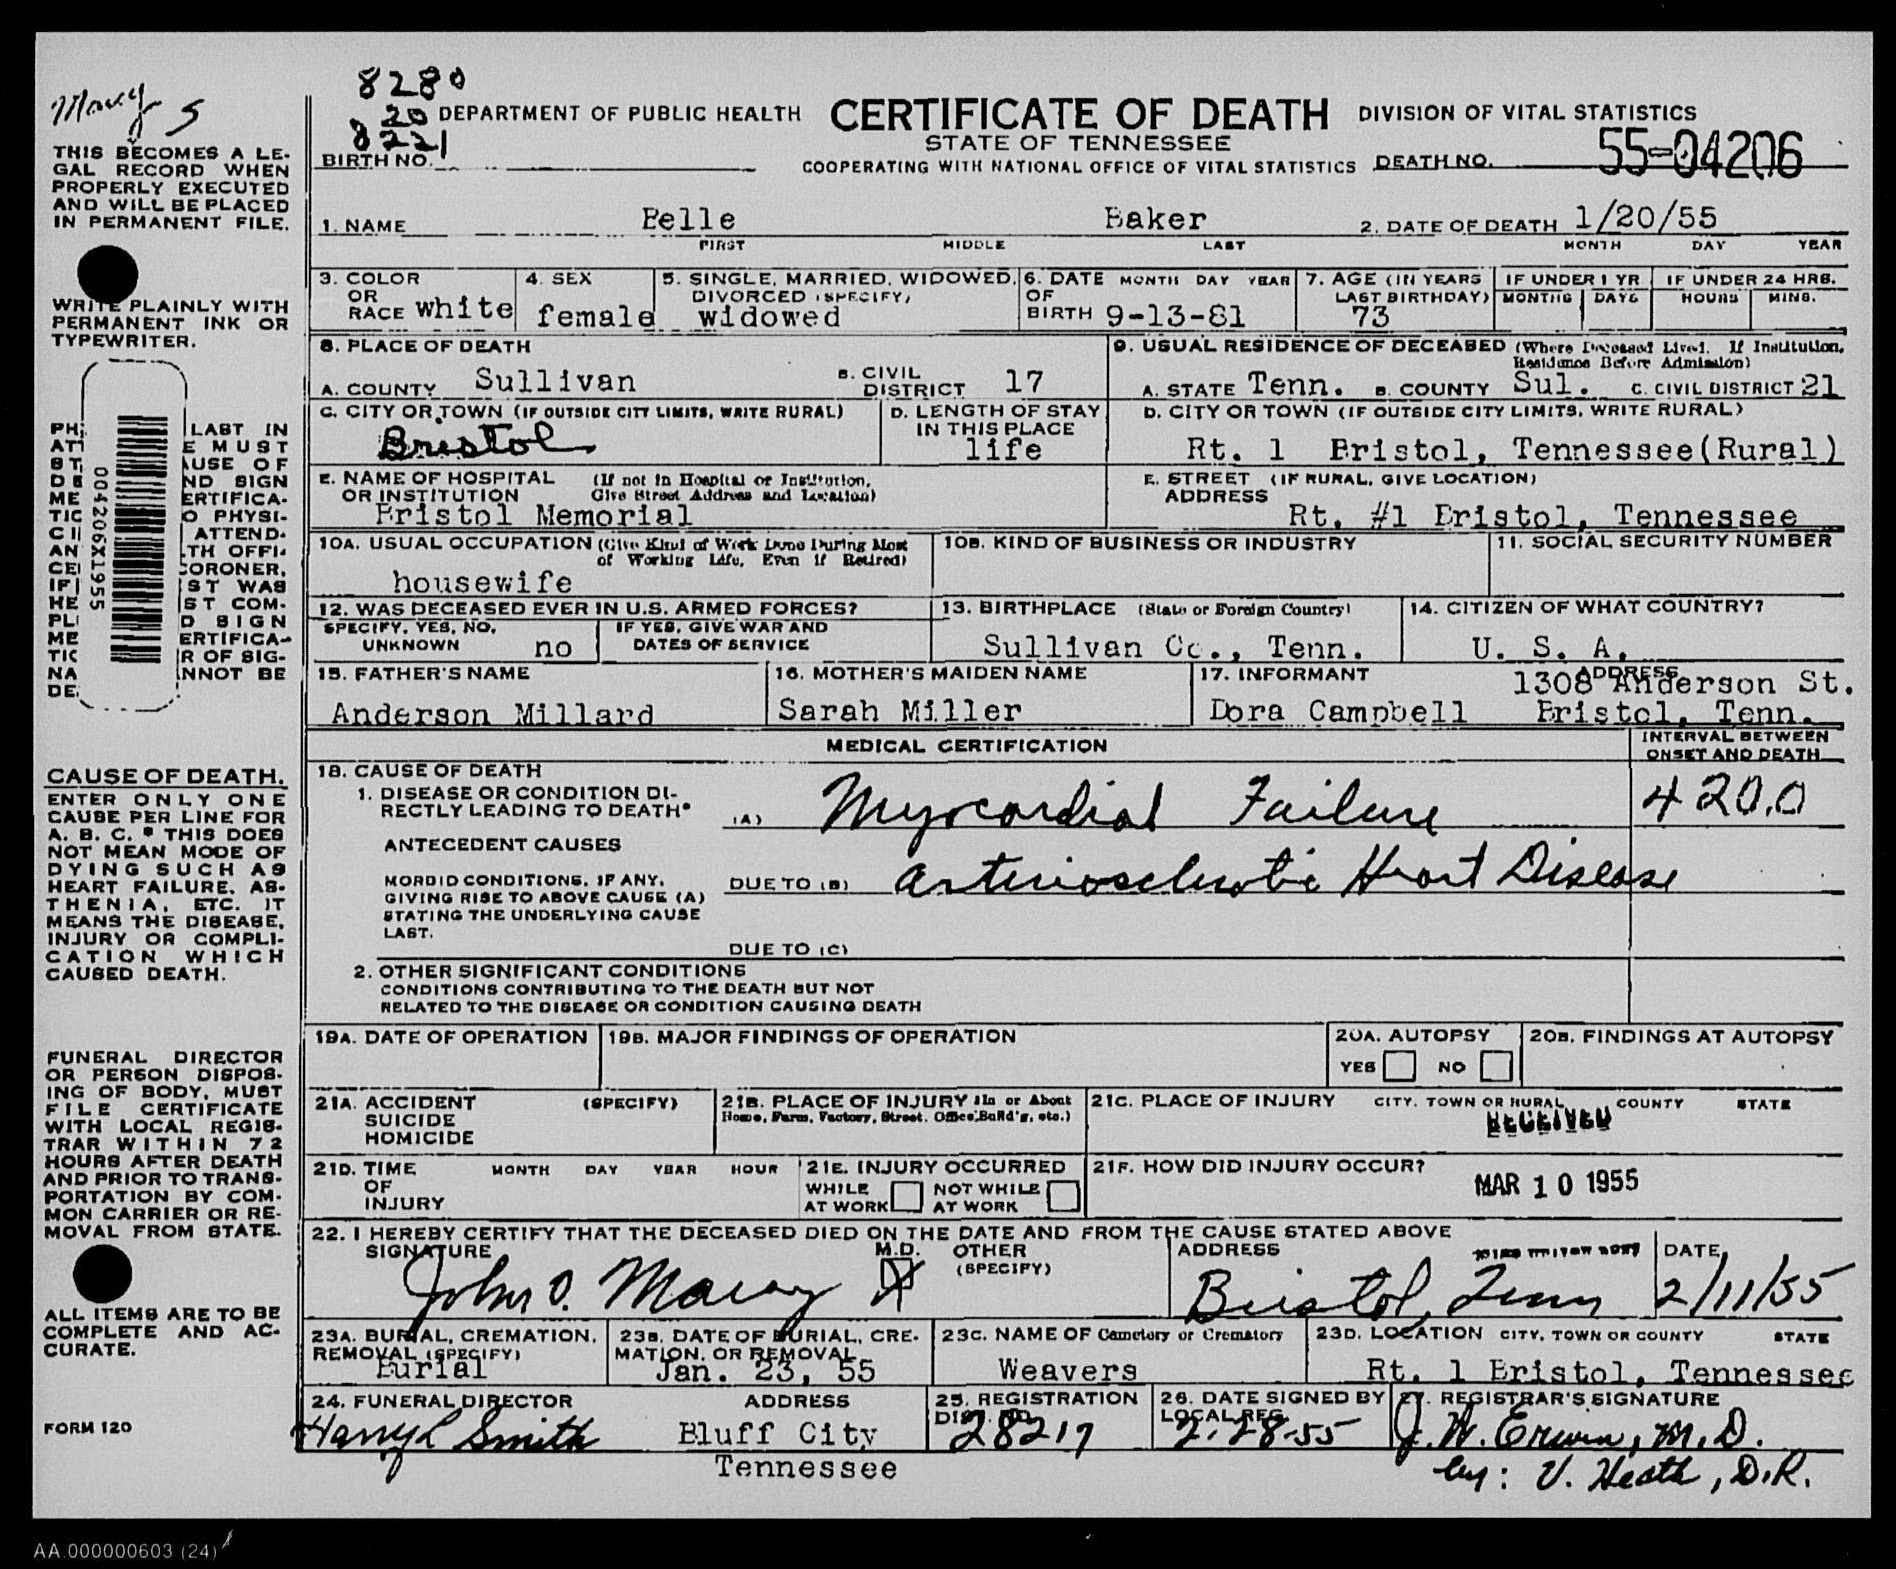 8280
Macy S
20 DEPARTMENT OF PUBLIC HEALTH CERTIFICATE OF DEATH DIVISION OF VITAL STATISTICS
8221 STATE OF TENNESSEE 55-04206
BIRTH NO. COOPERATING WITH NATIONAL OFFICE OF VITAL STATISTICS DEATH NO.
THIS BECOMES A LE-
GAL RECORD WHEN
PROPERLY EXECUTED
AND WILL BE PLACED
IN PERMANENT FILE.
WRITE PLAINLY WITH
PERMANENT INK OR
TYPEWRITER.
PH LAST IN
ATT E MUST
ST AUSE OF
DE ND SIGN
ME ERTIFICA-
TIC O PHYSI-
CI ATTEND-
AN TH OFFI-
CE CORONER,
IF ST WAS
HE ST COM-
PL D SIGN
ME ERTIFICA-
TIC R OF SIG-
NA NNOT BE
DE
004206X1955
CAUSE OF DEATH.
ENTER ONLY ONE
CAUSE PER LINE FOR
A. B. C. * THIS DOES
NOT MEAN MODE OF
DYING SUCH AS
HEART FAILURE, AS-
THENIA, ETC. IT
MEANS THE DISEASE,
INJURY OR COMPLI-
CATION WHICH
CAUSED DEATH.
FUNERAL DIRECTOR
OR PERSON DISPOS-
ING OF BODY, MUST
FILE CERTIFICATE
WITH LOCAL REGIS-
TRAR WITHIN 72
HOURS AFTER DEATH
AND PRIOR TO TRANS-
PORTATION BY COM-
MON CARRIER OR RE-
MOVAL FROM STATE.
ALL ITEMS ARE TO BE
COMPLETE AND AC-
CURATE.
FORM 120
1. NAME Belle Baker 2. DATE OF DEATH 1/20/55
FIRST MIDDLE LAST MONTH DAY YEAR
3. COLOR OR RACE white
4. SEX female
5. SINGLE, MARRIED, WIDOWED, DIVORCED (SPECIFY) widowed
6. DATE OF BIRTH MONTH DAY YEAR 9-13-81
7. AGE (IN YEARS LAST BIRTHDAY) 73
IF UNDER 1 YR MONTHS DAYS
IF UNDER 24 HRS. HOURS MINS.
8. PLACE OF DEATH
A. COUNTY Sullivan B. CIVIL DISTRICT 17
9. USUAL RESIDENCE OF DECEASED (Where Deceased Lived. If Institution, Residence Before Admission)
A. STATE Tenn. B. COUNTY Sul. C. CIVIL DISTRICT 21
C. CITY OR TOWN (IF OUTSIDE CITY LIMITS, WRITE RURAL) Bristol
D. LENGTH OF STAY IN THIS PLACE life
D. CITY OR TOWN (IF OUTSIDE CITY LIMITS, WRITE RURAL)
Rt. 1 Bristol, Tennessee(Rural)
E. NAME OF HOSPITAL OR INSTITUTION (If not in Hospital or Institution, Give Street Address and Location)
Bristol Memorial
E. STREET ADDRESS (IF RURAL, GIVE LOCATION)
Rt. #1 Bristol, Tennessee
10A. USUAL OCCUPATION (Give Kind of Work Done During Most of Working Life, Even if Retired)
housewife
10B. KIND OF BUSINESS OR INDUSTRY
11. SOCIAL SECURITY NUMBER
12. WAS DECEASED EVER IN U.S. ARMED FORCES?
SPECIFY, YES, NO, UNKNOWN no
IF YES, GIVE WAR AND DATES OF SERVICE
13. BIRTHPLACE (State or Foreign Country)
Sullivan Co., Tenn.
14. CITIZEN OF WHAT COUNTRY?
U. S. A.
15. FATHER'S NAME
Anderson Millard
16. MOTHER'S MAIDEN NAME
Sarah Miller
17. INFORMANT ADDRESS
Dora Campbell 1308 Anderson St.
Bristol, Tenn.
MEDICAL CERTIFICATION
INTERVAL BETWEEN ONSET AND DEATH
18. CAUSE OF DEATH
1. DISEASE OR CONDITION DI-
RECTLY LEADING TO DEATH* (A) Myocardial Failure 420.0
ANTECEDENT CAUSES
MORBID CONDITIONS, IF ANY,
GIVING RISE TO ABOVE CAUSE (A)
STATING THE UNDERLYING CAUSE
LAST.
DUE TO (B) Arteriosclerotic Heart Disease
DUE TO (C)
2. OTHER SIGNIFICANT CONDITIONS
CONDITIONS CONTRIBUTING TO THE DEATH BUT NOT
RELATED TO THE DISEASE OR CONDITION CAUSING DEATH
19A. DATE OF OPERATION
19B. MAJOR FINDINGS OF OPERATION
20A. AUTOPSY
YES NO
20B. FINDINGS AT AUTOPSY
21A. ACCIDENT (SPECIFY)
SUICIDE
HOMICIDE
21B. PLACE OF INJURY (In or About Home, Farm, Factory, Street, Office Build'g, etc.)
21C. PLACE OF INJURY CITY, TOWN OR RURAL COUNTY STATE
RECEIVED
21D. TIME OF INJURY MONTH DAY YEAR HOUR
21E. INJURY OCCURRED
WHILE AT WORK NOT WHILE AT WORK
21F. HOW DID INJURY OCCUR?
MAR 10 1955
22. I HEREBY CERTIFY THAT THE DECEASED DIED ON THE DATE AND FROM THE CAUSE STATED ABOVE
SIGNATURE M.D. OTHER (SPECIFY) ADDRESS DATE
John O. Macy X Bristol, Tenn 2/11/55
23A. BURIAL, CREMATION, REMOVAL (SPECIFY)
Burial
23B. DATE OF BURIAL, CRE-
MATION, OR REMOVAL
Jan. 23, 55
23C. NAME OF Cemetery or Crematory
Weavers
23D. LOCATION CITY, TOWN OR COUNTY STATE
Rt. 1 Bristol, Tennessee
24. FUNERAL DIRECTOR ADDRESS
Harry L Smith Bluff City
Tennessee
25. REGISTRATION DIST. NO.
28217
26. DATE SIGNED BY LOCAL REG.
2-28-55
27. REGISTRAR'S SIGNATURE
J. W. Erwin, M.D.
by: V. Heath, D.R.
AA.000000603 (24)